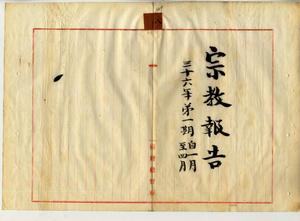 宗教報告
三十六年第一期自一月至四月